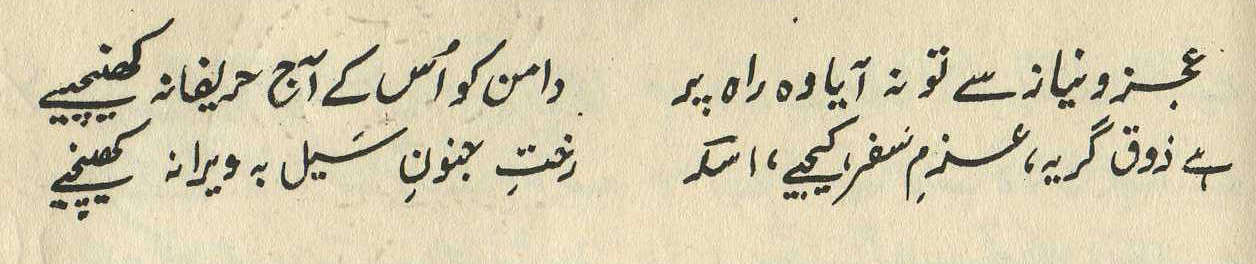 عجز و نیاز سے تو نہ آیا وہ راہ پر دامن کو اُس کے آج حریفانہ کھینچیے
اے ذوق گریہ، عزمِ سَفر کیجیے، اسدؔ رختِ جنونِ سَیل بہ ویرانہ کھینچیے